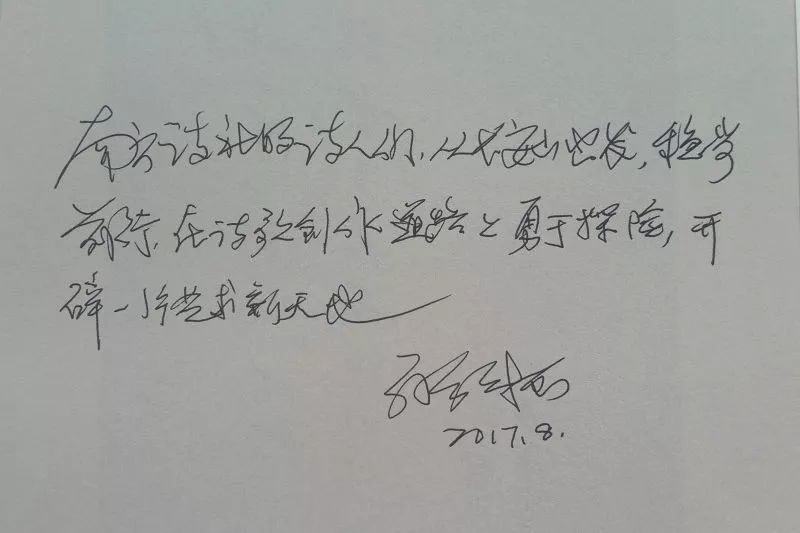 南方诗社的诗人们,从长安山出发,稳步
前行,在诗歌创作道路上勇于探险,开
辟一片艺术新天地
2017.8.